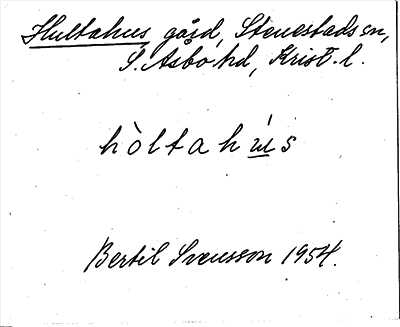 Hultahus gård, Stenestads sn,
S. Åsbo hd, Krist. l.
hòltahús
Bertil Svensson 1954.